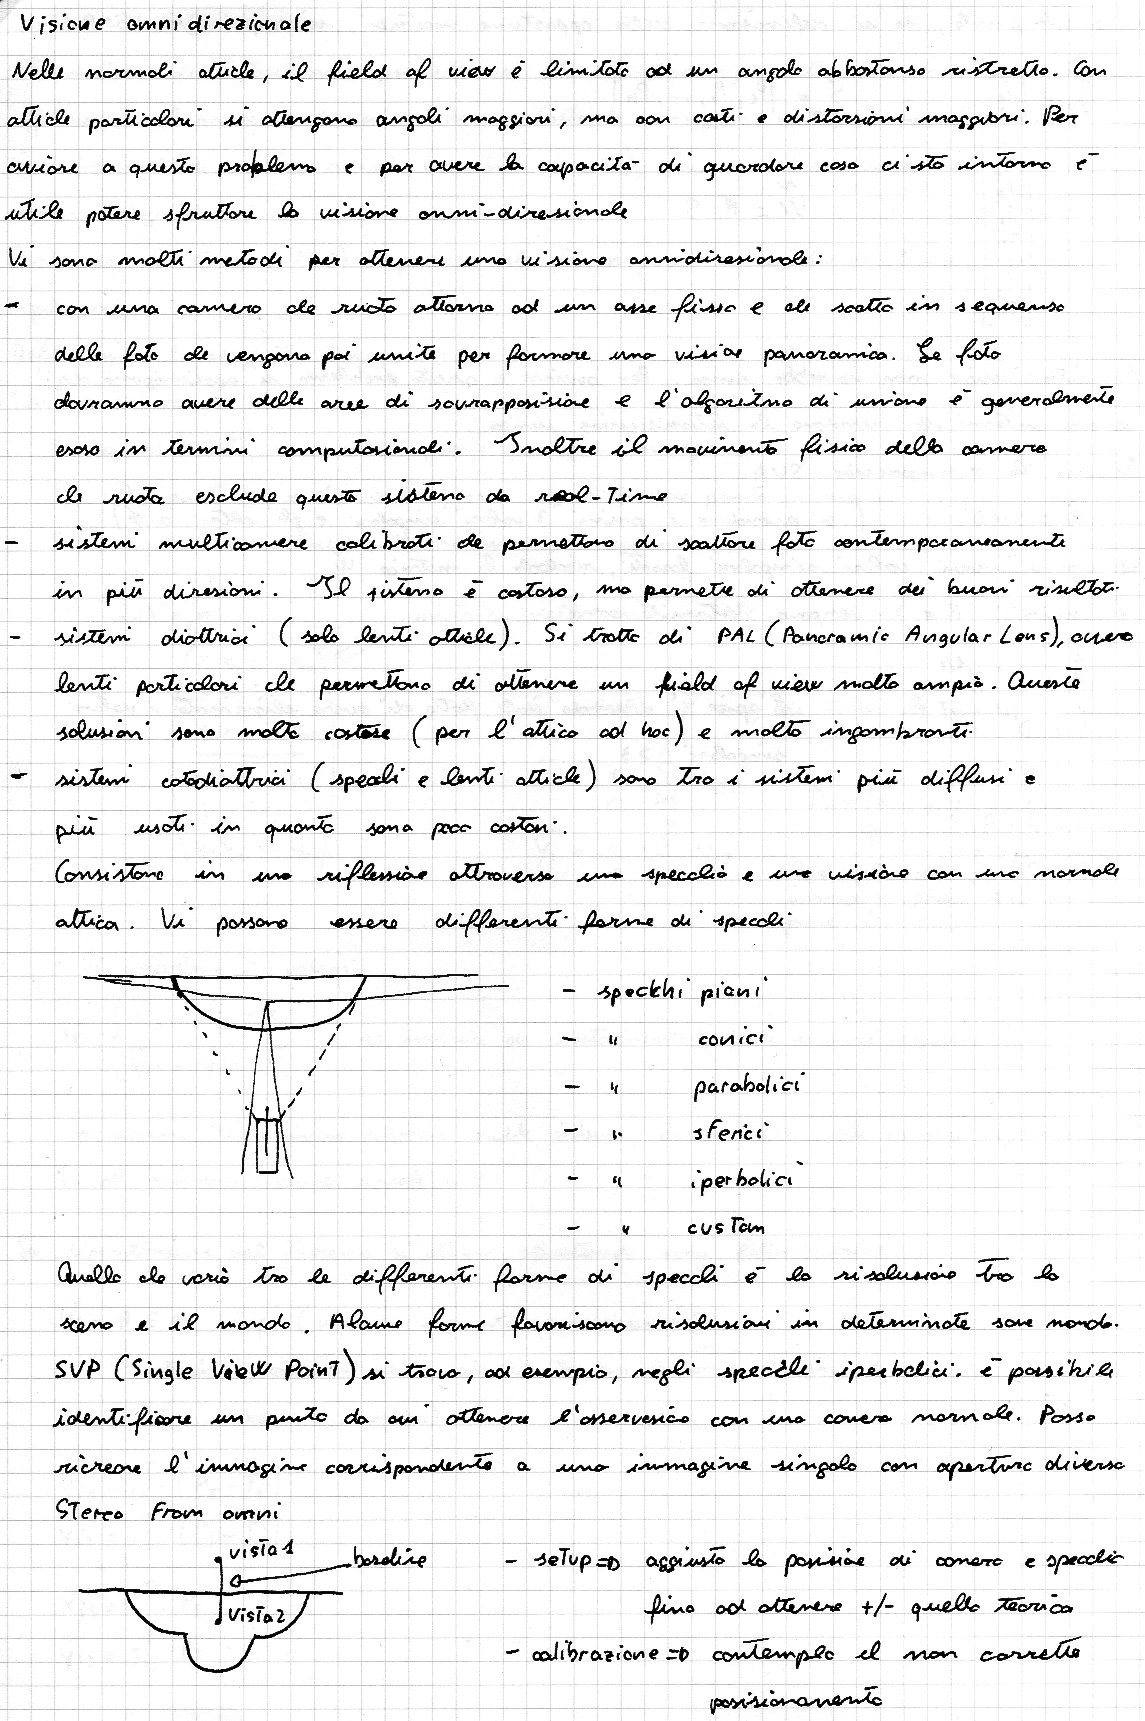 Visione omnidirezionale
Nelle normali ottiche, il field of view è limitato ad un angolo abbastanza ristretto. Con
ottiche particolari si ottengono angoli maggiori, ma con costi e distorsioni maggiori. Per
ovviare a questo problema e per avere la capacità di guardare cosa ci sta intorno è
utile potere sfruttare la visione omni-direzionale
Vi sono molti metodi per ottenere una visione omnidirezionale:
- con una camera che ruota attorno ad un asse fisso e che scatta in sequenza
delle foto che vengono poi unite per formare una visione panoramica. Le foto
dovranno avere delle aree di sovrapposizione e l'algoritmo di unione è generalmente
esoso in termini computazionali. Inoltre il movimento fisico della camera
che ruota esclude questo sistema da real-Time
- sistemi multicamere calibrati che permettono di scattare foto contemporaneamente
in più direzioni. Il sistema è costoso, ma permette di ottenere dei buoni risultati
- sistemi diottrici (solo lenti ottiche). Si tratta di PAL (Panoramic Angular Lens), ovvero
lenti particolari che permettono di ottenere un field of view molto ampio. Queste
soluzioni sono molto costose (per l'ottica ad hoc) e molto ingombranti.
- sistemi catadiottrici (specchi e lenti ottiche) sono tra i sistemi più diffusi e
più usati in quanto sono poco costosi.
Consistono in una riflessione attraverso uno specchio e una visione con una normale
ottica. Vi possono essere differenti forme di specchi
- specchi piani
- " conici
- " parabolici
- " sferici
- " iperbolici
- " custom
Quello che varia tra le differenti forme di specchi è la risoluzione tra la
scena e il mondo. Alcune forme favoriscono risoluzioni in determinate zone mondo.
SVP (Single VieW PoinT) si trova, ad esempio, negli specchi iperbolici. è possibile
identificare un punto da cui ottenere l'osservazione con una camera normale. Posso
ricreare l'immagine corrispondente a una immagine singola con apertura diversa
STereo From omni
vista1
baseline
Vista2
- seTup => aggiusto la posizione di camera e specchio
fino ad ottenere +/- quella teorica
- calibrazione => contempla il non corretto
posizionamento